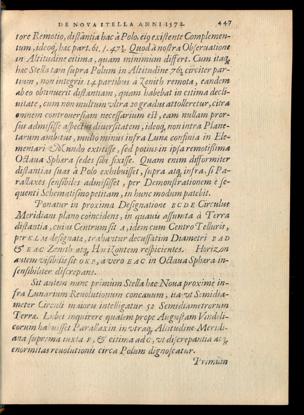 DE NOVA STELLA ANNI 1572. 447
tore Remotio, distãntia hac à Polo. 619 existente Complemen-
tum, ideoq́; hac part. 61. 47 Quod à nostra Observatione
in Altitudine extima, quam minimum differt. Cum itaq́;
hac Stella tam supra Polum in Altitudine 76 circiter par-
tium, non integris 14 partibus à Zenith remota, eandem
ab eo obtinuerit distantiam, quam habebat in extima decli-
uitate, cum non multum vltra 20 gradus attolleretur, citra
omnem controuersiam necessarium est, eam nullam pror-
sus admisisse aspectus diuersitatem, ideoq́; non intra Plane-
tarum ambitus, multo minus infra Lunæ confinia in Ele-
mentari Mundo extitisse, sed potius in ipsa remotissima
Octaua Sphæra sedes sibi fixisse. Quam enim difformiter
distantias suas à Polo exhibuisset, supra atq́; infra, si Pa-
rallaxes sensibiles admisisset, per Demonstrationem è se-
quenti Schematismo petitam, in hunc modum patebit.
Ponatur in proxima Designatione ECDE Circulus
Meridiani plano coincidens, in quauis assumta à Terra
distantia, cuius Centrum sit A, idem cum Centro Telluris,
per designatæ, trahantur decussatim Diametri FAD
& EAC Zenith atq́; Horizontem respicientes. Horizon
autem visibilis sit OKP, à vero EAC in Octaua Sphæra in-
sensibiliter discrepans.
Sit autem nunc primùm Stella hæc Noua proximè in-
fra Lunarium Reuolutionum concauum, ita vt Semidia-
meter Circuli in auxu intelligatur 52 Semidiametrorum
Terræ. Lubet inquirere qualem prope Augustam Vindeli-
corum habuisset Parallaxin in vtraq́; Altitudine Meridi-
ana suprema iuxta F, & extima ad C, vt discrepantia at
enormitas reuolutionis circa Polum dignoscatur.
Primùm